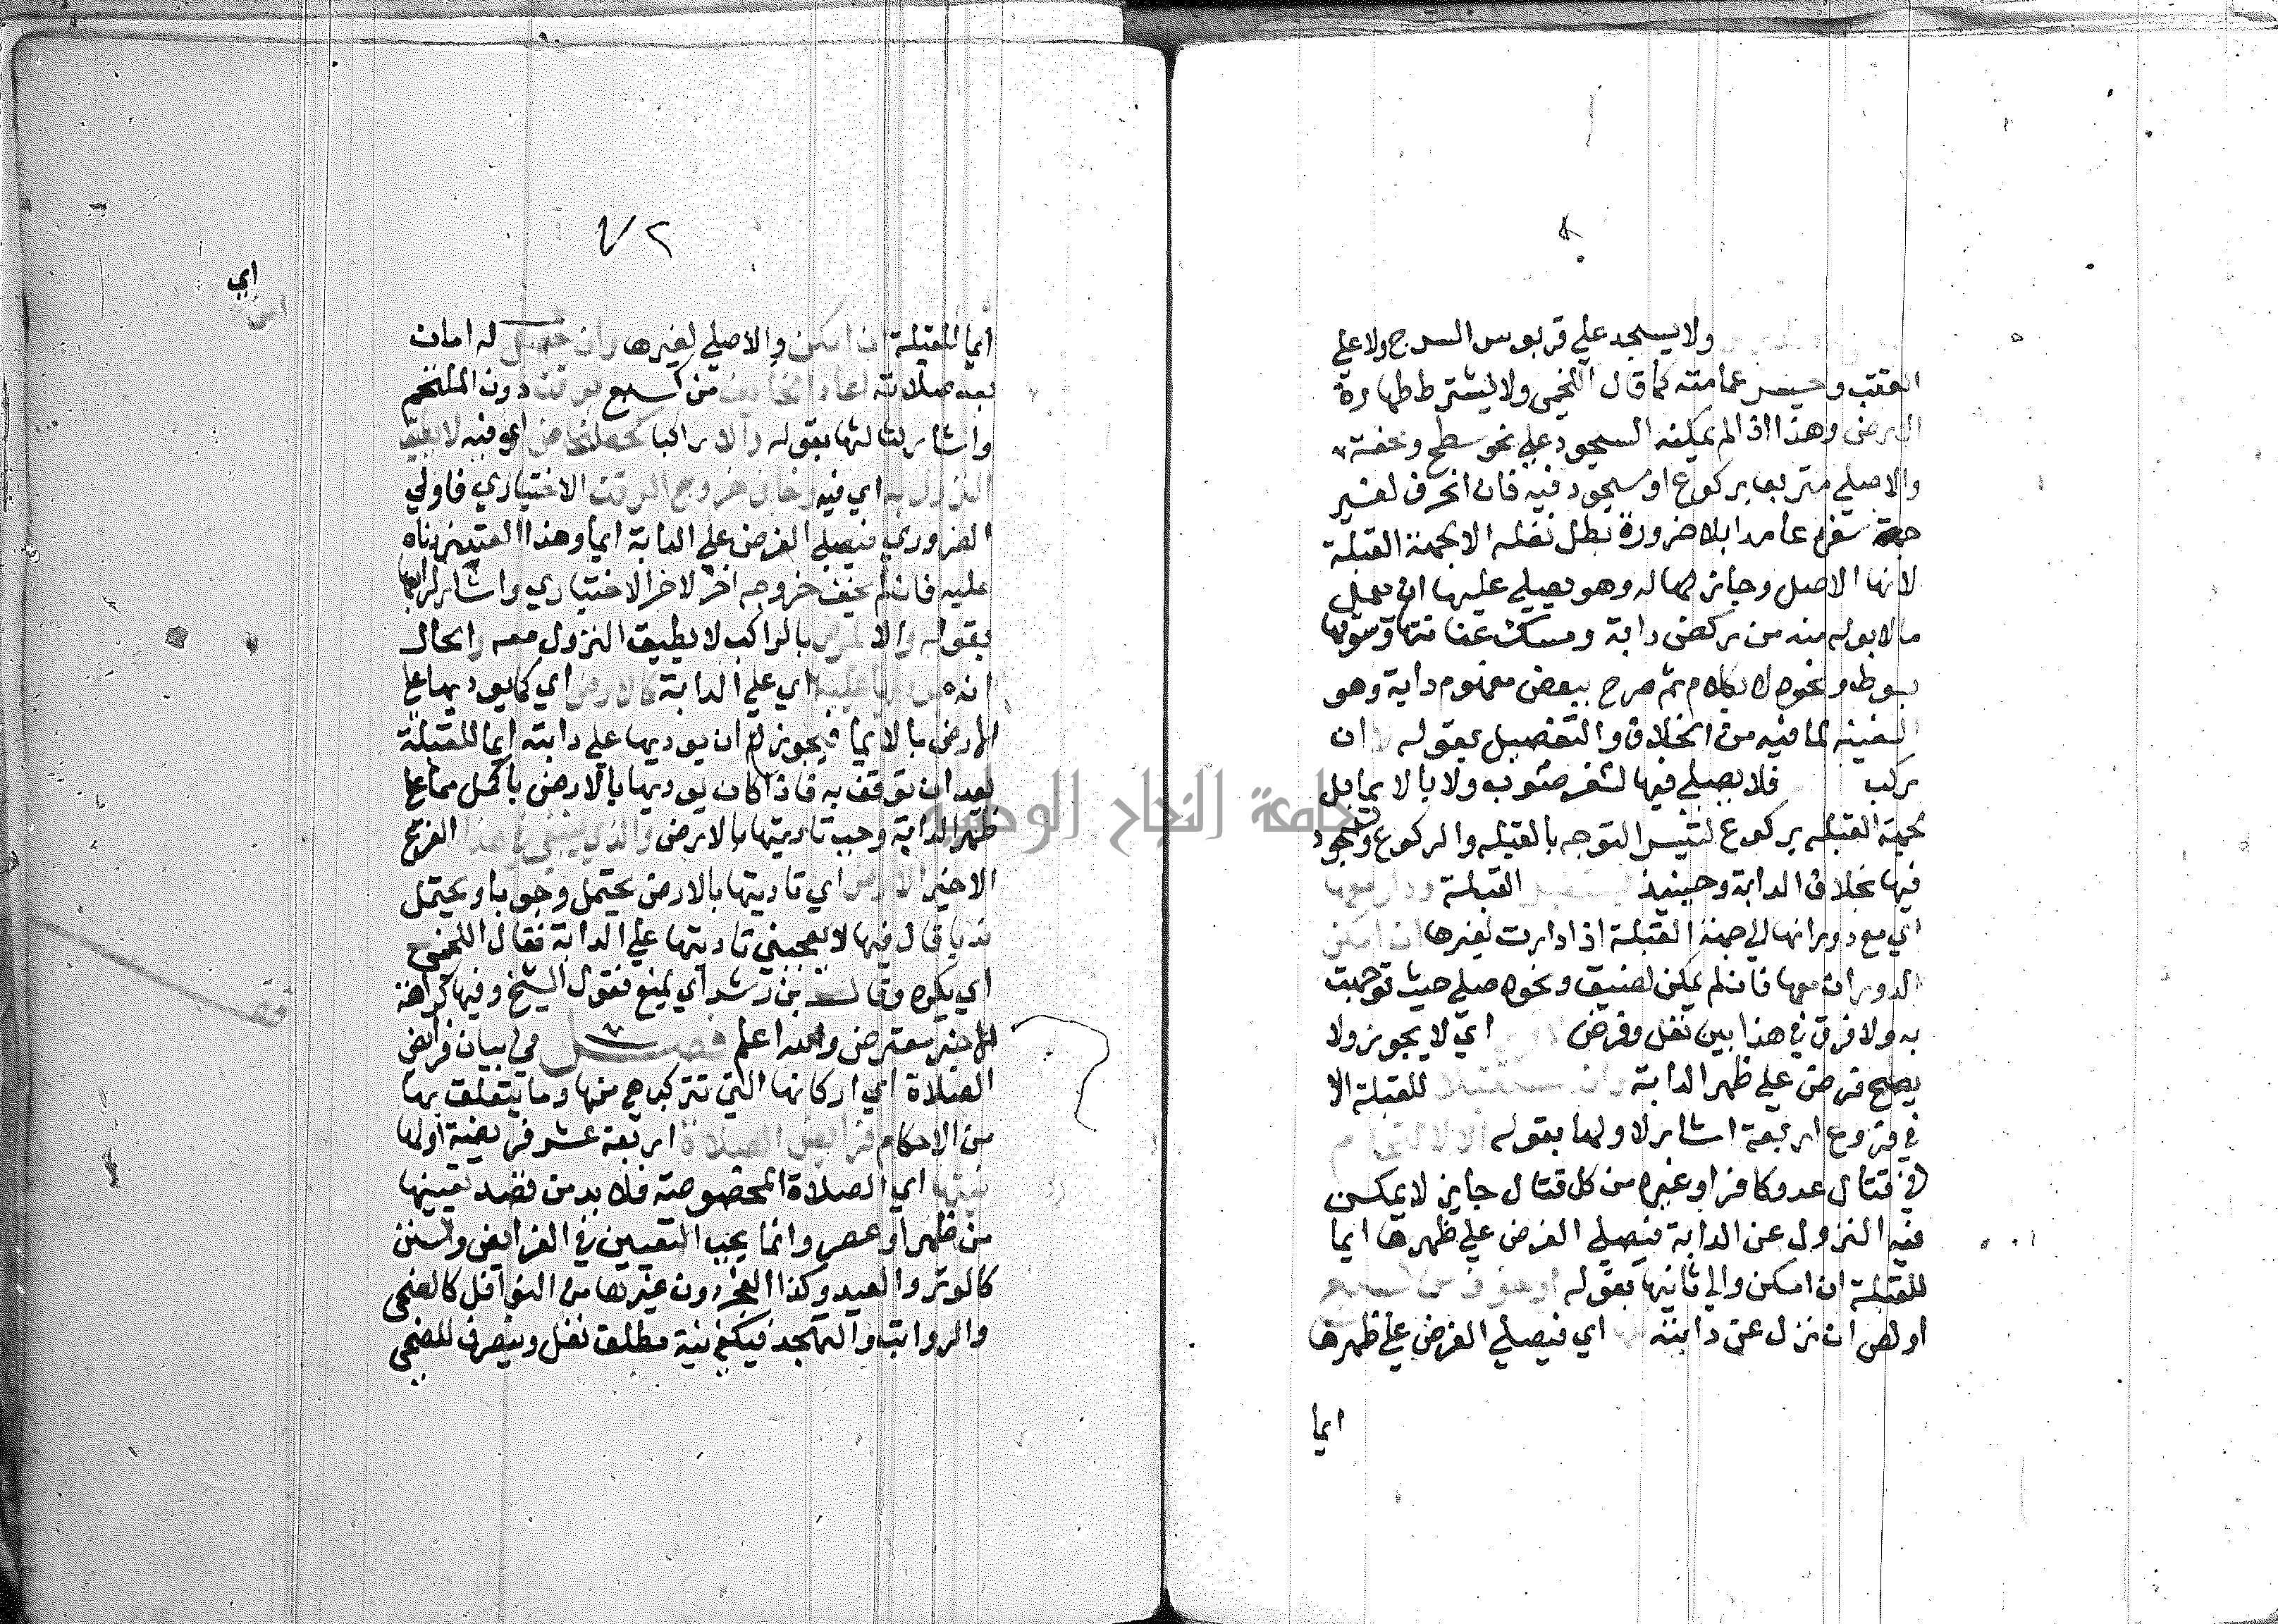 ولا يسجد علي قربوس السرج ولا علي
القتب وحسر عمامته كما قال اللخمي ولا يشترط طهارة
الارض وهذا اذا لم يمكنه السجود علي نحو سطح وخفة
والاصلي متربعا بركوع او سجود فيه فان انحرف لغير
جهة سفره عامدا بلا ضرورة بطل نفله الا لجهة القبلة
لانها الاصل وجائز لها له وهو يصلي عليها ان يعمل
مالا بد له منه من ركض دابة ومسك عنانها وسوقها
بسوط ونحوه لا بكلام ثم صرح ببعض مفهوم دابة وهو
السفينة لما فيه من الخلاف والتفصيل بقوله لا ان
ركب فلا يصلي فيها لسفر صوب ولا بالايما بل
لجهة القبله بركوع لتيسر التوجه بالقبله والركوع والسجود
فيها بخلاف الدابة وحينيذ يستقبل القبلة ودار معها
اي مع دورانها الي جهة القبلة اذا دارت لغيرها ان امكن
الدوران معها فان لم يمكن لضيق ونحوه صلي حيث توجهت
به ولا فرق في هذا بين نفل وفرض اي لا يجوز ولا
يصح فرض علي ظهر الدابة وان مستقبلا للقبلة الا
في فروع اربعة اشار لاولها بقوله الا لالتحام
في قتال عدو كافر او غيره من كل قتال جايز لا يمكن
فيه النزول عن الدابة فيصلي الفرض علي ظهرها ايما
للقبلة ان امكن والي ثانيها بقوله او خوف من كسبع
او لص ان نزل عن دابته اي فيصلي الفرض علي ظهرها
ايما
٧٢
ايما للقبلة ان امكن والاصلي لغيرها وان حصل له امان
بعد صلاته اعاد الخايف من كسبع بوقت دون الملتحم
واشار لثالثها بقوله والا راكبا كخضخاض اي فيه لا يطيق
النزول به اي فيه وخاف خروج الوقت الاختياري فاولي
الضروري فيصلي الفرض علي الدابة ايما وهذا القيد زدناه
عليه فان لم يخف خروجه اخر لاخر الاختياري واشار لرابعها
بقوله والا لمرض بالراكب لا يطيق النزول معه والحال
انه يوديها عليها اي علي الدابة كالارض اي كما يوديها علي
الارض بالايما فيجوز له ان يوديها علي دابته ايما للقبلة
بعد ان توقف به فاذا كان يوديها بالارض باكمل مما علي
ظهر الدابة وجب تاديتها بالارض والذي ينبغي في هذا الفرع
الاخير الارض اي تاديتها بالارض يحتمل وجوبا ويحتمل
ندبا قال فيها لا يعجبني تاديتها علي الدابة فقال اللخمي
اي يكره وقال بن رشد اي يمنع فقول الشيخ وفيها كراهة
الاخير معترض والله اعلم فصل في بيان فرايض
الصلاة اي اركانها التي تتركب هي منها وما يتعلق بها
من الاحكام فرايض الصلاة اربعة عشر فريضة اولها
نيتها اي الصلاة المخصوصة فلا بد من قصد تعيينها
من ظهر او عصر وانما يجب التعيين في الفرايض والسنن
كالوتر والعيد وكذا الفجر دون غيرها من النوافل كالضحى
والرواتب والتهجد فيكفي نية مطلق نفل وينصرف للضحى
اي
جامعة النجاح الوطنية